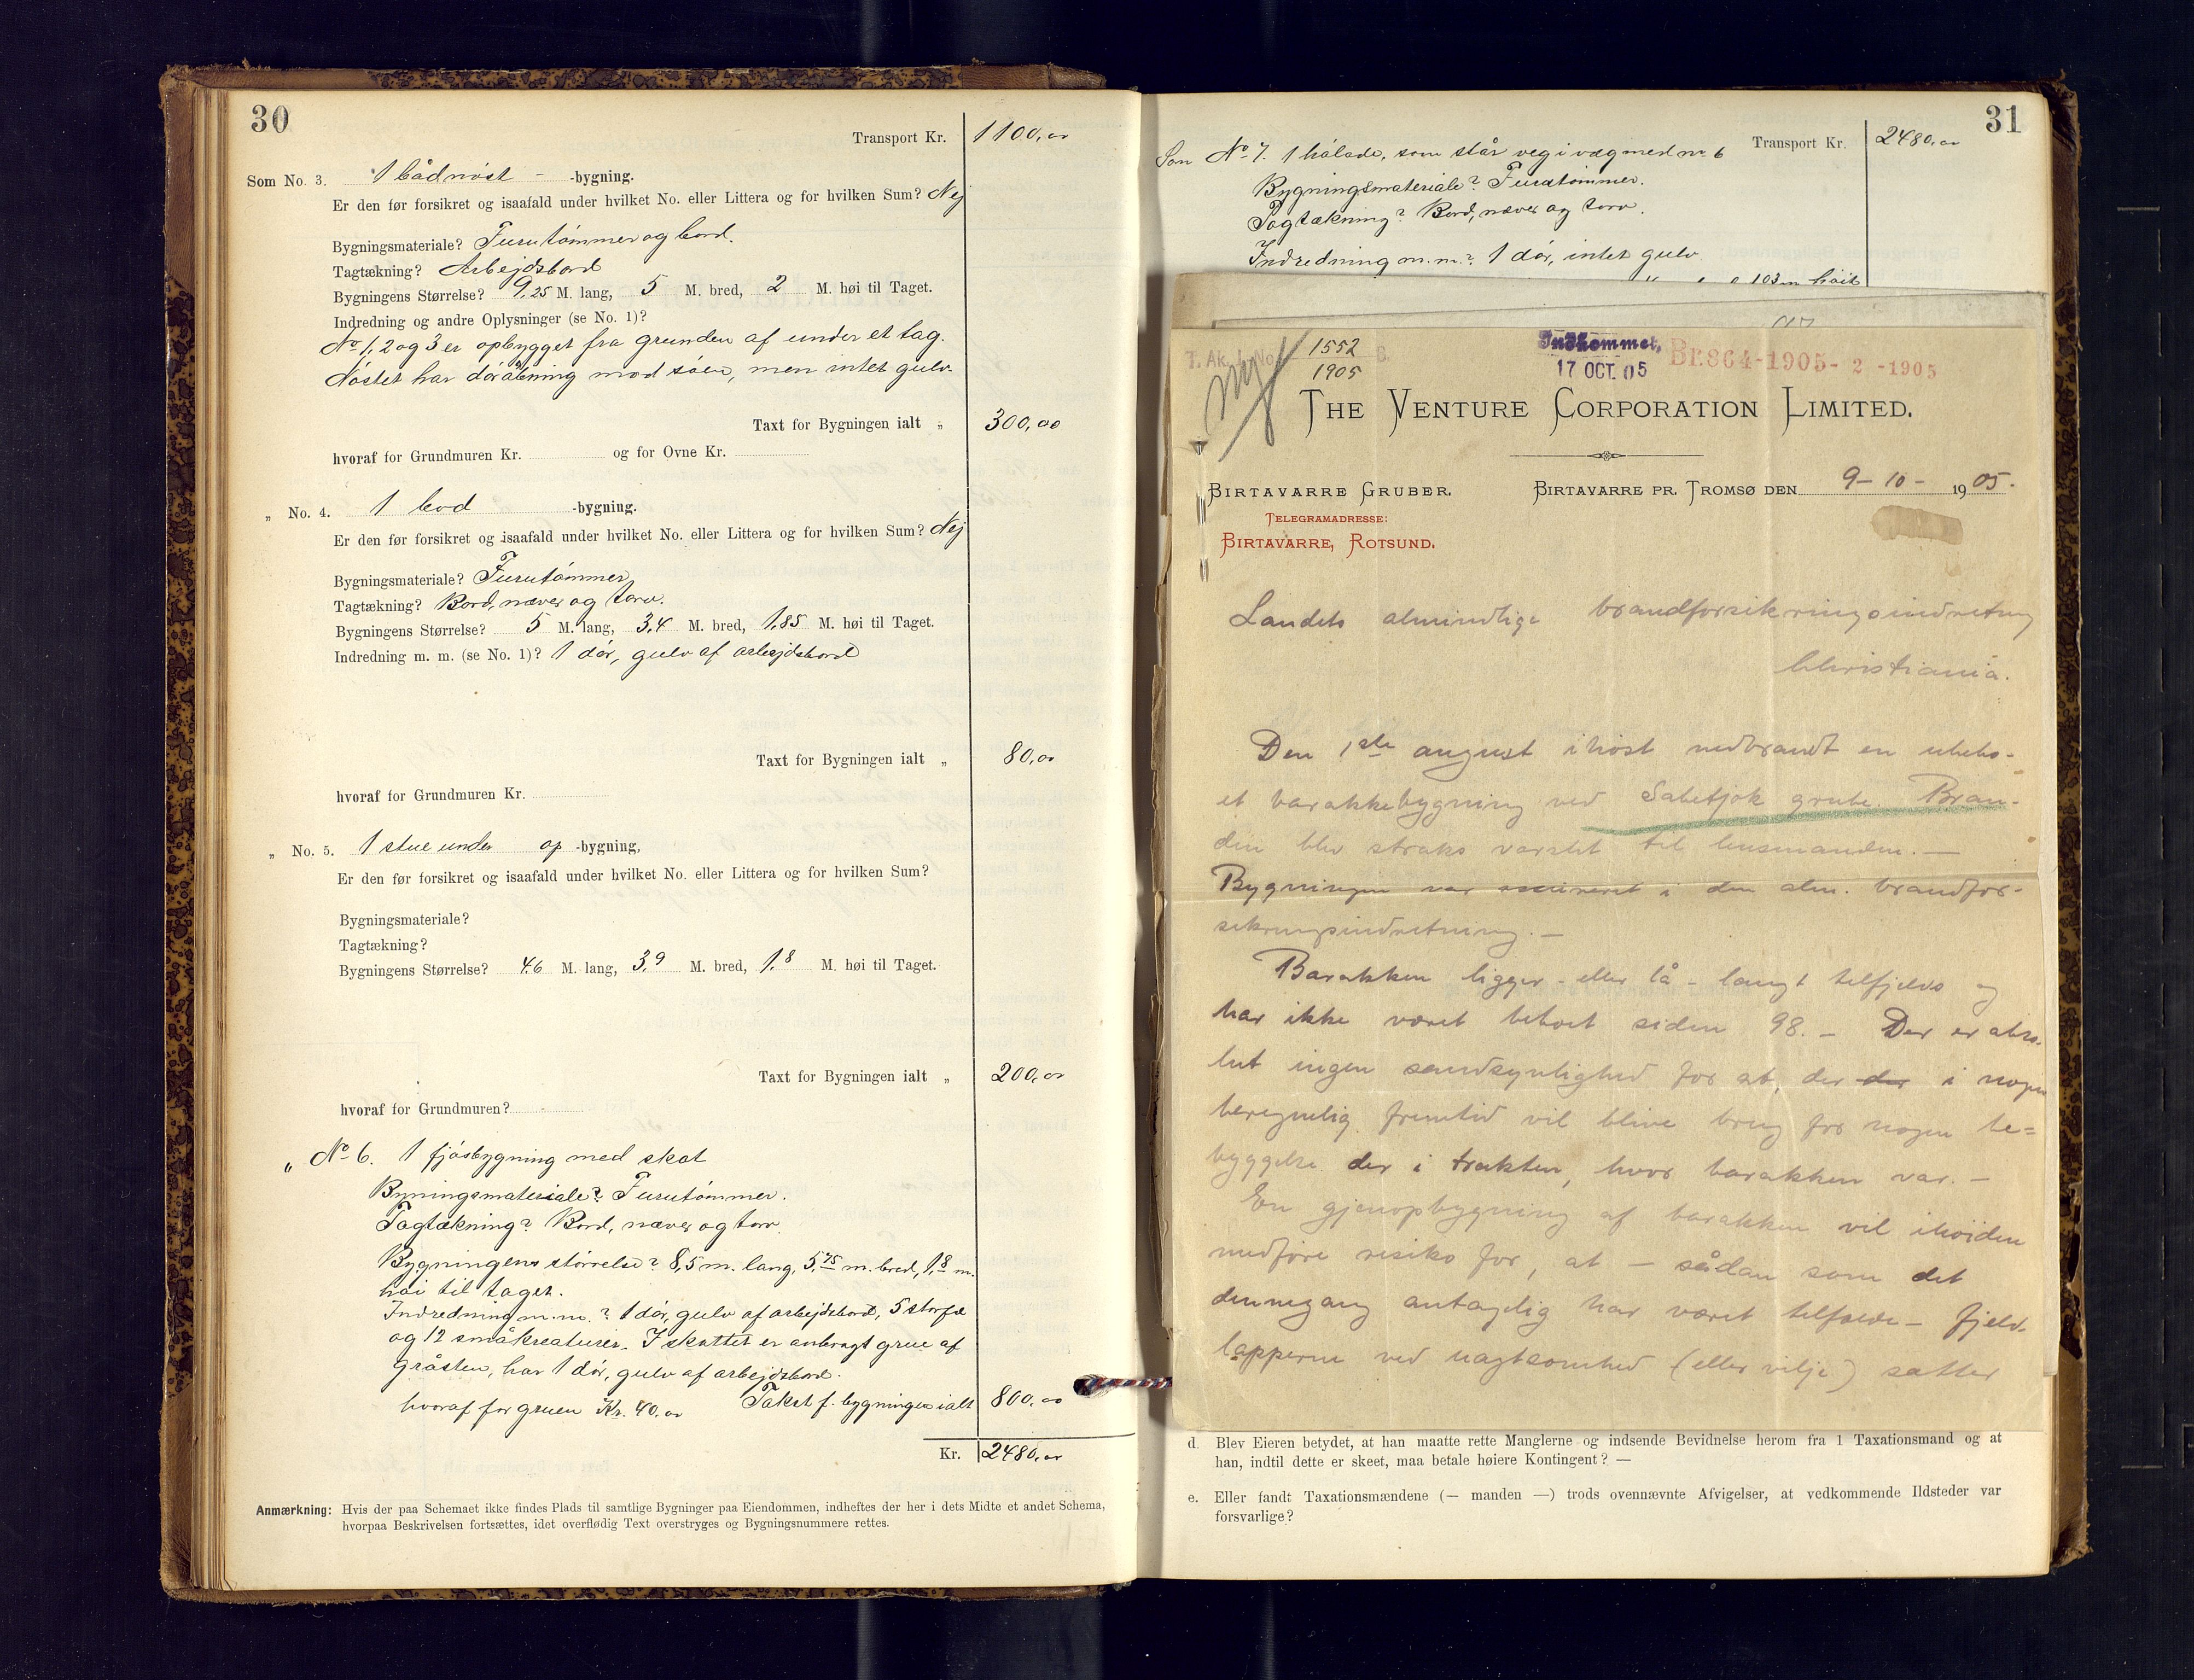 30
Transport Kr. 1100,00
Som No. 3. 1 bådnøst - -bygning.
Er den før forsikret og isaafald under hvilket No. eller Littera og for hvilken Sum? Nej
Bygningsmateriale? Furutømmer og bord.
Tagtækning? Arbejdsbord
Bygningens Størrelse? 9,25 M. lang, 5 M. bred, 2 M. høi til Taget.
Indredning og andre Oplysninger (se No. 1)?
No 1, 2 og 3 er opbygget fra grunden af under et tag.
Nøstet har døråbning mod søen, men intet gulv.
Taxt for Bygningen ialt „ 300,00
hvoraf for Grundmuren Kr. og for Ovne Kr.
„ No. 4. 1 bod -bygning.
Er den før forsikret og isaafald under hvilket No. eller Littera og for hvilken Sum? Nej
Bygningsmateriale? Furutømmer
Tagtækning? Bord, næver og torv.
Bygningens Størrelse? 5 M. lang, 3,4 M. bred, 1,85 M. høi til Taget.
Indredning m. m. (se No. 1)? 1 dør, gulv af arbejdsbord
Taxt for Bygningen ialt „ 80,00
hvoraf for Grundmuren Kr.
„ No. 5. 1 stue under op -bygning,
Er den før forsikret og isaafald under hvilket No. eller Littera og for hvilken Sum?
Bygningsmateriale?
Tagtækning?
Bygningens Størrelse? 4,6 M. lang, 3,9 M. bred, 1,8 M. høi til Taget.
Taxt for Bygningen ialt „ 200,00
hvoraf for Grundmuren?
„ No 6. 1 fjøsbygning med skot
Bygningsmateriale? Furutømmer.
Tagtækning? Bord, næver og torv.
Bygningens størrelse? 8,5 m. lang, 5,75 m. bred, 1,8 m.
høi til taget.
Indredning m.m.? 1 dør, gulv af arbejdsbord, 5 storfæ
og 12 småkreaturer. I skottet er anbragt grue af
gråsten, har 1 dør, gulv af arbejdsbord.
hvoraf for gruen Kr. 40,00 Takst f. bygningen ialt 800,00
Kr. 2480,00
Anmærkning: Hvis der paa Schemaet ikke findes Plads til samtlige Bygninger paa Eiendommen, indheftes der her i dets Midte et andet Schema,
hvorpaa Beskrivelsen fortsættes, idet overflødig Text overstryges og Bygningsnummere rettes.
31
Transport Kr. 2480,00
Som No 7. 1 hølade, som står veg i væg med nr 6
Bygningsmateriale? Furutømmer.
Tagtækning? Bord, næver og torv.
Indredning m.m.? 1 dør, intet gulv
T. Ak. J. No. 1552 B.
1905
Indkommet,
17 OCT. 05
Br. 864-1905- 2 -1905
THE VENTURE CORPORATION LIMITED.
BIRTAVARRE GRUBER.
BIRTAVARRE PR. TROMSØ DEN 9-10- 1905.
TELEGRAMADRESSE:
BIRTAVARRE, ROTSUND.
Landets almindlige brandforsikringsindretning
Christiania.
Den 1ste august ihøst nedbrandt en ubebo-
et barakkebygning ved Sabetjok grube. Bran-
den blev straks varslet til lensmanden. —
Bygningen var assureret i den alm. brandfor-
sikringsindretning. —
Barakken ligger - eller lå - langt tilfjelds og
har ikke været beboet siden 98. - Der er abso-
lut ingen sandsynlighed for at, der der i nogen
beregnelig fremtid vil blive brug for nogen be-
byggelse der i trakten, hvor barakken var. -
En gjenopbygning af barakken vil ihøiden
medføre risiko for, at - sådan som det
dennegang antagelig har været tilfælde - fjeld-
lapperne ved uagtsomhed (eller vilje) sætter
d. Blev Eieren betydet, at han maatte rette Manglerne og indsende Bevidnelse herom fra 1 Taxationsmand og at
han, indtil dette er skeet, maa betale høiere Kontingent? —
e. Eller fandt Taxationsmændene (— manden —) trods ovennævnte Afvigelser, at vedkommende Ildsteder var
forsvarlige?